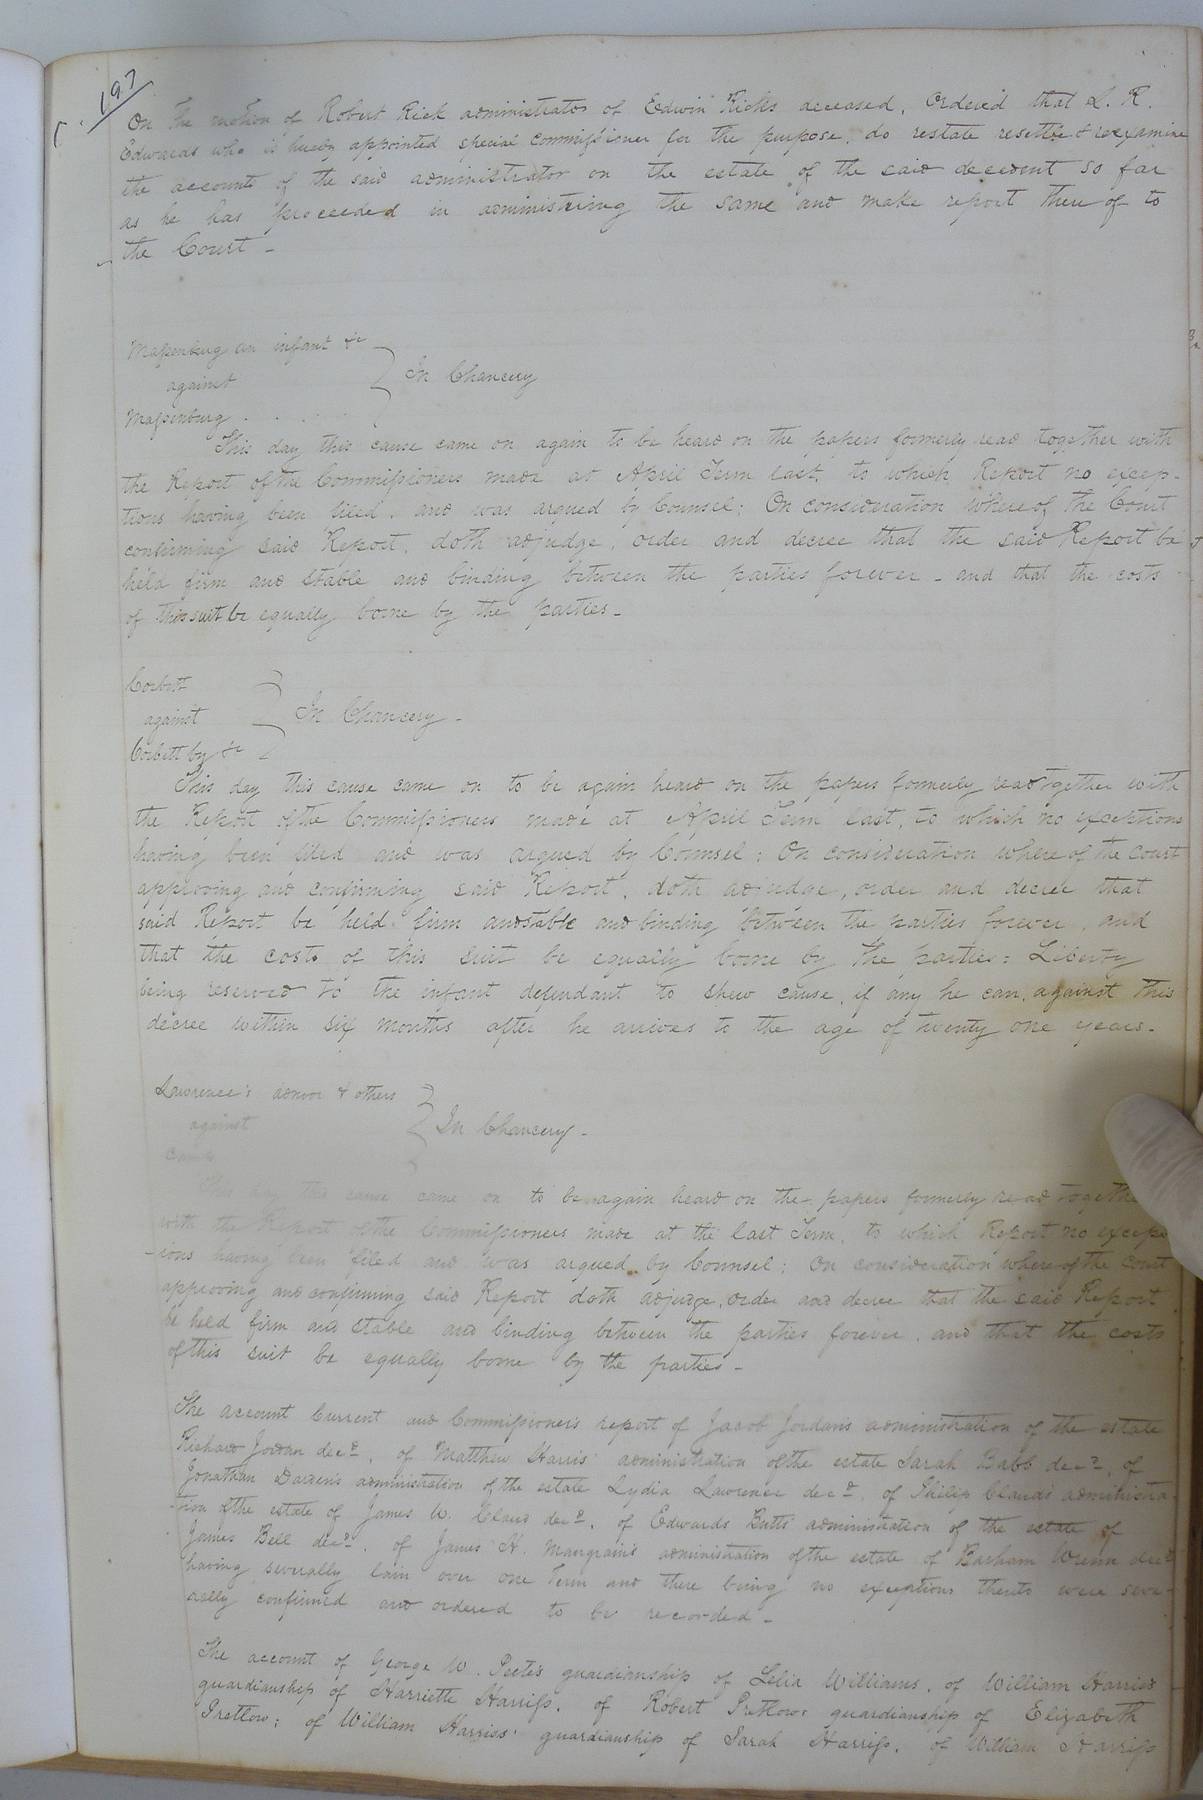 197
On the motion of Robert Rick administrator of Edwin Ricks deceased, Ordered that L. R.
Edwards who is hereby appointed special commissioner for the purpose, do restate resettle & reexamine
the accounts of the said administrator on the estate of the said decedent so far
as he has proceeded in administering the same and make report there of to
the Court -
Massenburg an infant &c
against
In Chancery
Massenburg . . . .
This day this cause came on again to be heard on the papers formerly read together with
the Report of the Commissioners made at April Term last, to which Report no excep-
tions having been filed, and was argued by Counsel; On consideration where of the Court
confirming said Report, doth adjudge, order and decree that the said Report be
held firm and stable and binding between the parties forever - and that the costs
of this suit be equally borne by the parties -
Corbett
against
In Chancery -
Corbett by &c
This day this cause came on to be again heard on the papers formerly read together with
the Report of the Commissioners made at April Term last, to which no exceptions
having been filed and was argued by Counsel; On consideration where of the Court
approving and confirming said Report, doth adjudge, order and decree that
said Report be held firm and stable and binding between the parties forever, and
that the costs of this suit be equally borne by the parties: Liberty
being reserved to the infant defendant to shew cause, if any he can, against this
decree within six months after he arrives to the age of twenty one years -
Lawrence's admor & others
against
In Chancery -
This day this cause came on to be again heard on the papers formerly read together
with the Report of the Commissioners made at the last Term, to which Report no except
-ions having been filed and was argued by Counsel; On consideration where of the Court
approving and confirming said Report doth adjudge, order and decree that the said Report
be held firm and stable and binding between the parties forever, and that the costs
of this suit be equally borne by the parties -
The account Current and Commissioners report of Jacob Jordans administration of the estate
Richard Jordan decd. of Matthew Harris administration of the estate Sarah Babb decd. of
Jonathan Darden's administration of the estate Lydia Lawrence decd. of Philip Claud's administra-
-tion of the estate of James W. Claud decd. of Edwards Butts administration of the estate of
James Bell decd. of James H. Mangrain's administration of the estate of Barham Wrenn decd
having severally lain over one Term and there being no exceptions thereto were seve-
rally confirmed and ordered to be recorded -
The account of George W. Peete's guardianship of Lelia Williams, of William Harriss
guardianship of Harriette Harriss, of Robert Pretlows guardianship of Elizabeth
Pretlow; of William Harriss' guardianship of Sarah Harriss, of William Harriss